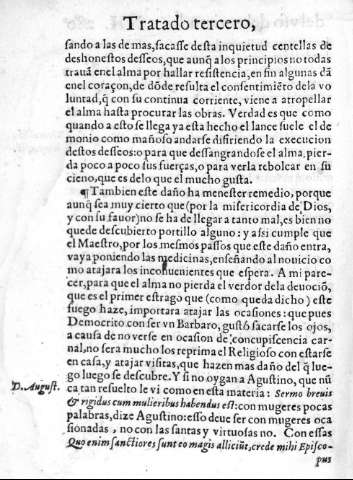 Tratado tercero,
sando a las de mas, sacasse desta inquietud centellas de
deshonestos desseos, que aunq̃ a los principios no todas
trauã en el alma por hallar resistencia, en fin algunas dã
en el coraçon, de dõde resulta el consentimiẽto de la vo
luntad, q̃ con su continua corriente, viene a atropellar
el alma hasta procurar las obras. Verdad es que como
quando a esto se llega ya esta hecho el lance suele el de
monio como mañoso andarse difiriendo la execucion
destos desseos: o para que dessangrandose el alma, pier-
da poco a poco sus fuerças, o para verla rebolcar en su
cieno, que es delo que el mucho gusta.
¶ Tambien este daño ha menester remedio, porque
aunq̃ sea muy cierto que (por la misericordia de Dios,
y con su fauor) no se ha de llegar a tanto mal, es bien no
quede descubierto portillo alguno: y assi cumple que
el Maestro, por los mesmos passos que este daño entra,
vaya poniendo las medicinas, enseñando al nouicio co
mo atajara los inconuenientes que espera. A mi pare-
cer, para que el alma no pierda el verdor dela deuociõ,
que es el primer estrago que (como queda dicho) este
fuego haze, importara atajar las ocasiones: que pues
Democrito con ser vn Barbaro, gustó sacarse los ojos,
a causa de no verse en ocasion de concupiscencia car-
nal, no sera mucho los reprima el Religioso con estarse
en casa, y atajar visitas, que hazen mas daño del q̃ lue-
go luego se descubre. Y si no oygan a Agustino, que nũ
D. August.
ca tan resuelto le vi como en esta materia: Sermo breuis
& rigidus cum mulieribus habendus est: con mugeres pocas
palabras, dize Agustino: esso deue ser con mugeres oca
sionadas, no con las santas y virtuosas no. Con essas
Quo enim sanctiores sunt eo magis alliciũt, crede mihi Episco-
pus